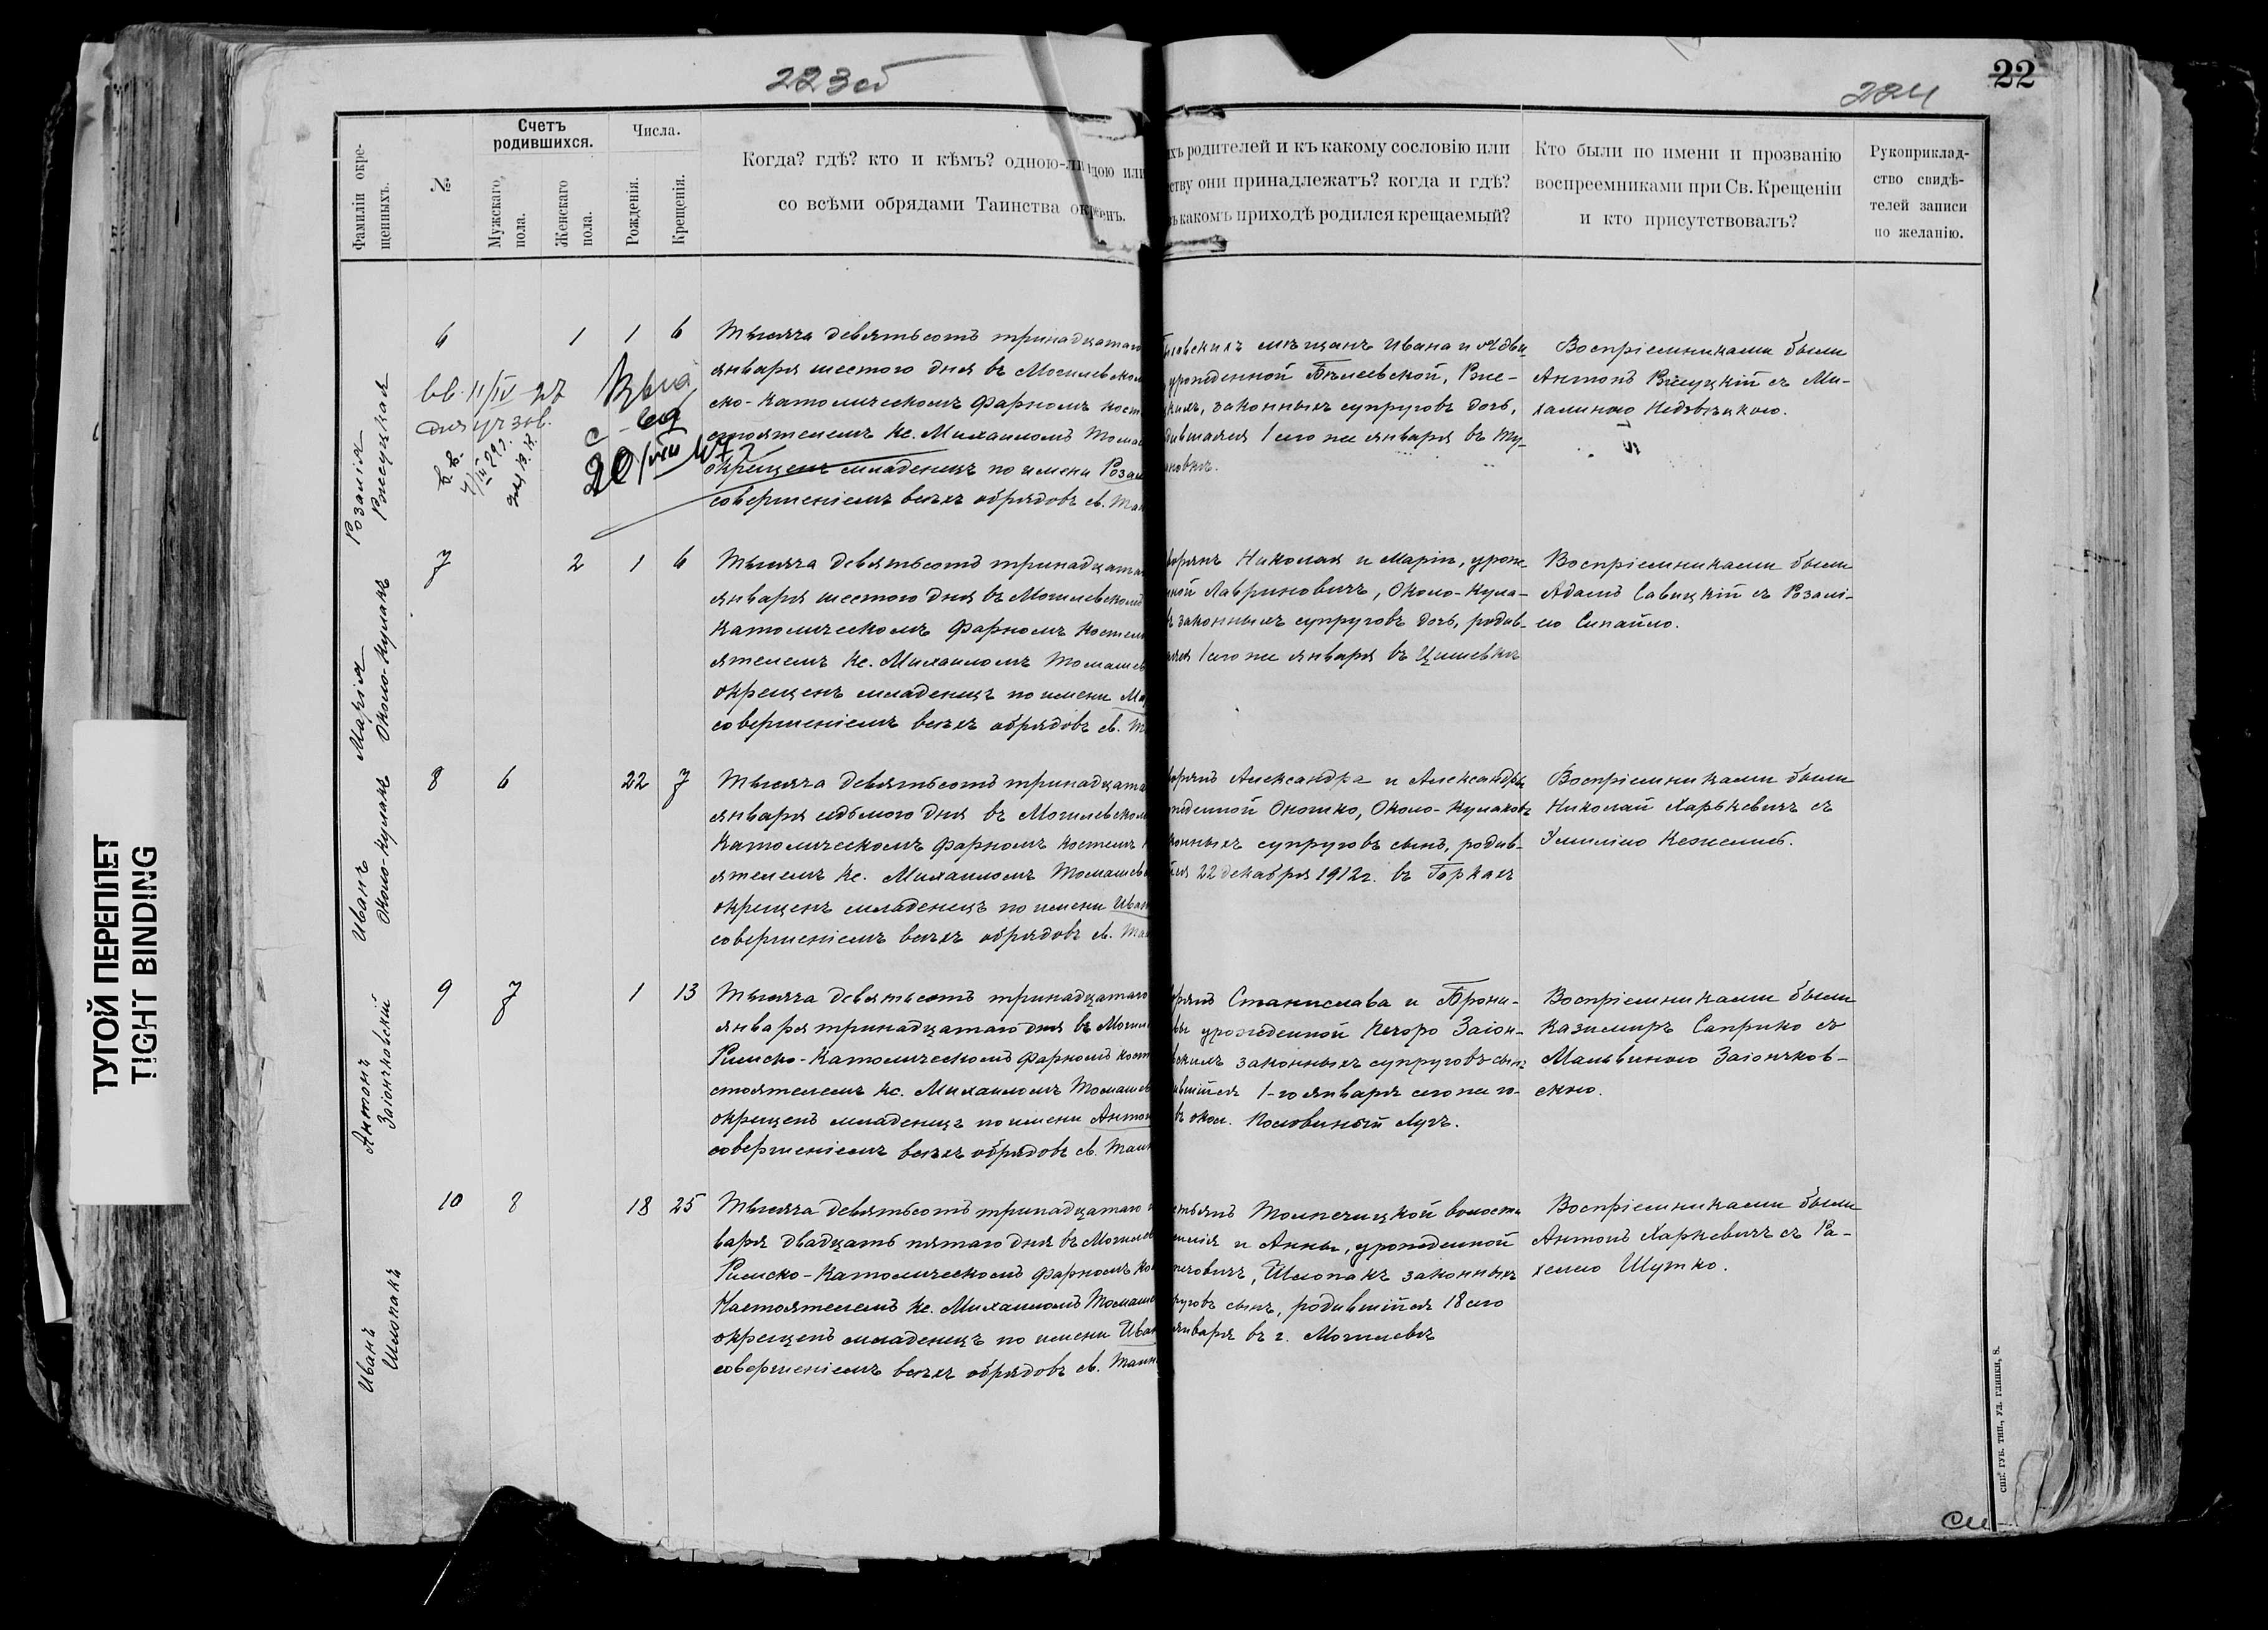 223об
224
22
Фамиліи окре-
щенныхъ.
№
Счетъ
родившихся.
Мужскаго
пола.
Женскаго
пола.
Числа.
Рожденія.
Крещенія.
Когда? гдѣ? кто и кѣмъ? одною-ли
со всѣми обрядами Таинства
родителей и къ какому сословію или
они принадлежатъ? когда и гдѣ?
какомъ приходѣ родился крещаемый?
Кто были по имени и прозванію
воспреемниками при Св. Крещеніи
и кто присутствовалъ?
Рукоприклад-
ство свидѣ-
телей записи
по желанію.
Розалія
6
1
1
6
Тысяча девятьсотъ тринадцатаго
января шестого дня въ Могилевском
ско-Католическомъ Фарномъ кост
стоятелемъ Кс. Михаиломъ Томаш
окрещенъ младенецъ по имени Розал
совершеніемъ всѣхъ обрядовъ св. Таи
мѣщанъ Ивана и Ядви-
урожденной Бѣлевской,
законныхъ супруговъ дочь,
1 сего же января въ
Воспріемниками были
Антонъ съ Ми-
халиною
20/VIII 47
Марія
Около-Кулакъ
7
2
1
6
Тысяча девятьсотъ тринадцата
января шестого дня въ Могилевском
Католическомъ Фарномъ Костел
ятелемъ Кс. Михаиломъ Томашев
окрещенъ младенецъ по имени Ма
совершеніемъ всѣхъ обрядовъ св. Т
Николая и Маріи, урож-
ной Лавриновичъ, Около-Кула-
законныхъ супруговъ дочь, родив-
1 сего же января въ Цишевкѣ
Воспріемниками были
Адамъ Савицкій съ Розалі-
ею Сипайло.
Иванъ
Около-Кулакъ
8
6
22
7
Тысяча девятьсотъ тринадцата
января седьмого дня въ Могилевском
Католическомъ Фарномъ Костелѣ
ятелемъ Кс. Михаиломъ Томашев
окрещенъ младенецъ по имени Иван
совершеніемъ всѣхъ обрядовъ св. Таи
Александра и Александры
жденной Окошко, Около-Кулаковъ
конныхъ супруговъ сынъ, родив-
22 декабря 1912г. въ Горкахъ
Воспріемниками были
Николай Харькевичъ съ
Эмиліею
Антонъ
Заіончковскій
9
7
1
13
Тысяча девятьсотъ тринадцатаго
января тринадцатаго дня въ Могил
Римско-Католическомъ Фарномъ Кост
стоятелемъ Кс. Михаиломъ Томашев
окрещенъ младенецъ по имени Антон
совершеніемъ всѣхъ обрядовъ св. Таин
Станислава и Брони-
урожденной Заіон-
законныхъ супруговъ сынъ
1-го января сего же го-
въ окол. Половиный Лугъ.
Воспріемниками были
Казимиръ Саприко съ
Мальвиною Заіончков-
скою.
Иванъ
Шмопакъ
10
8
18
25
Тысяча девятьсотъ тринадцатаго
варя двадцать пятаго дня въ Могилев
Римско-Католическомъ Фарномъ Ко
Настоятелемъ Кс. Михаиломъ Томаш
окрещенъ младенецъ по имени Иван
совершеніемъ всѣхъ обрядовъ св. Таин
волости
и Анны, урожденной
Шмопакъ законныхъ
сынъ, родившійся 18 сего
января въ г. Могилевѣ
Воспріемниками были
Антонъ Харкевичъ съ Ра-
хелею Шутко.
ТУГОЙ ПЕРЕПЛЕТ
TIGHT BINDING
ГУБ. ТИП., УЛ. ГЛИНКИ, 8.